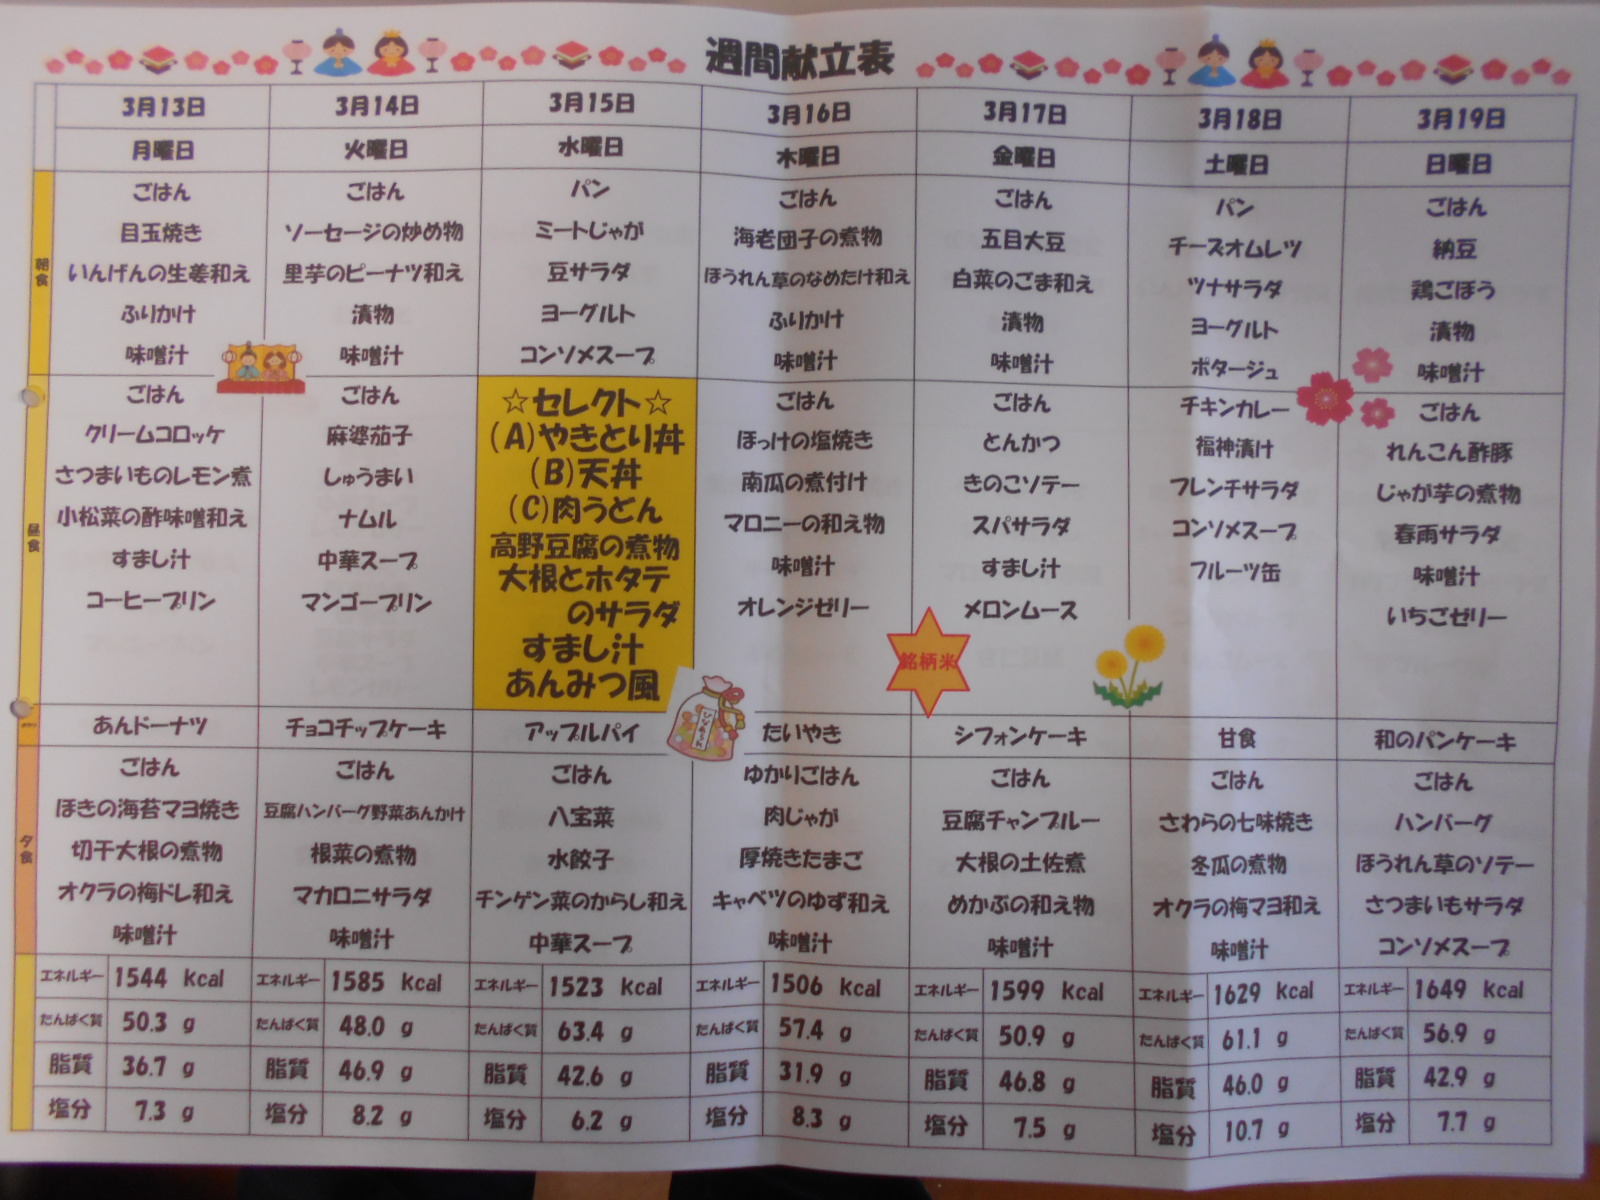 週間献立表
3月13日 3月14日 3月15日 3月16日 3月17日 3月18日 3月19日
月曜日 火曜日 水曜日 木曜日 金曜日 土曜日 日曜日
朝食
ごはん ごはん パン ごはん ごはん パン ごはん
目玉焼き ソーセージの炒め物 ミートじゃが 海老団子の煮物 五目大豆 チーズオムレツ 納豆
いんげんの生姜和え 里芋のピーナツ和え 豆サラダ ほうれん草のなめたけ和え 白菜のごま和え ツナサラダ 鶏ごぼう
ふりかけ 漬物 ヨーグルト ふりかけ 漬物 ヨーグルト 漬物
味噌汁 味噌汁 コンソメスープ 味噌汁 味噌汁 ポタージュ 味噌汁
昼食
ごはん ごはん ☆セレクト☆ ごはん ごはん チキンカレー ごはん
クリームコロッケ 麻婆茄子 (A)やきとり丼 ほっけの塩焼き とんかつ 福神漬け れんこん酢豚
さつまいものレモン煮 しゅうまい (B)天丼 南瓜の煮付け きのこソテー フレンチサラダ じゃが芋の煮物
小松菜の酢味噌和え ナムル (C)肉うどん マロニーの和え物 スパサラダ コンソメスープ 春雨サラダ
すまし汁 中華スープ 高野豆腐の煮物 味噌汁 すまし汁 フルーツ缶 味噌汁
コーヒープリン マンゴープリン 大根とホタテ オレンジゼリー メロンムース いちごゼリー
のサラダ
すまし汁 銘柄米
あんみつ風
ひなあられ
あんドーナツ チョコチップケーキ アップルパイ たいやき シフォンケーキ 甘食 和のパンケーキ
夕食
ごはん ごはん ごはん ゆかりごはん ごはん ごはん ごはん
ほきの海苔マヨ焼き 豆腐ハンバーグ野菜あんかけ 八宝菜 肉じゃが 豆腐チャンプルー さわらの七味焼き ハンバーグ
切干大根の煮物 根菜の煮物 水餃子 厚焼きたまご 大根の土佐煮 冬瓜の煮物 ほうれん草のソテー
オクラの梅ドレ和え マカロニサラダ チンゲン菜のからし和え キャベツのゆず和え めかぶの和え物 オクラの梅マヨ和え さつまいもサラダ
味噌汁 味噌汁 中華スープ 味噌汁 味噌汁 味噌汁 コンソメスープ
エネルギー 1544 kcal エネルギー 1585 kcal エネルギー 1523 kcal エネルギー 1506 kcal エネルギー 1599 kcal エネルギー 1629 kcal エネルギー 1649 kcal
たんぱく質 50.3 g たんぱく質 48.0 g たんぱく質 63.4 g たんぱく質 57.4 g たんぱく質 50.9 g たんぱく質 61.1 g たんぱく質 56.9 g
脂質 36.7 g 脂質 46.9 g 脂質 42.6 g 脂質 31.9 g 脂質 46.8 g 脂質 46.0 g 脂質 42.9 g
塩分 7.3 g 塩分 8.2 g 塩分 6.2 g 塩分 8.3 g 塩分 7.5 g 塩分 10.7 g 塩分 7.7 g